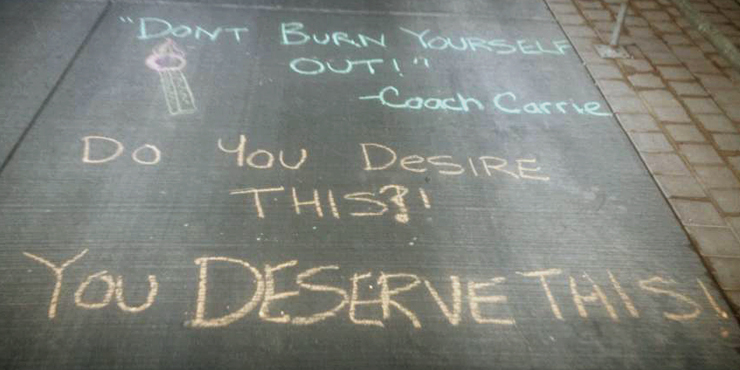 "DONT BURN YOURSELF
OUT!"
-Coach Carrie
Do You DESIRE
THIS?!
You DESERVE THIS!